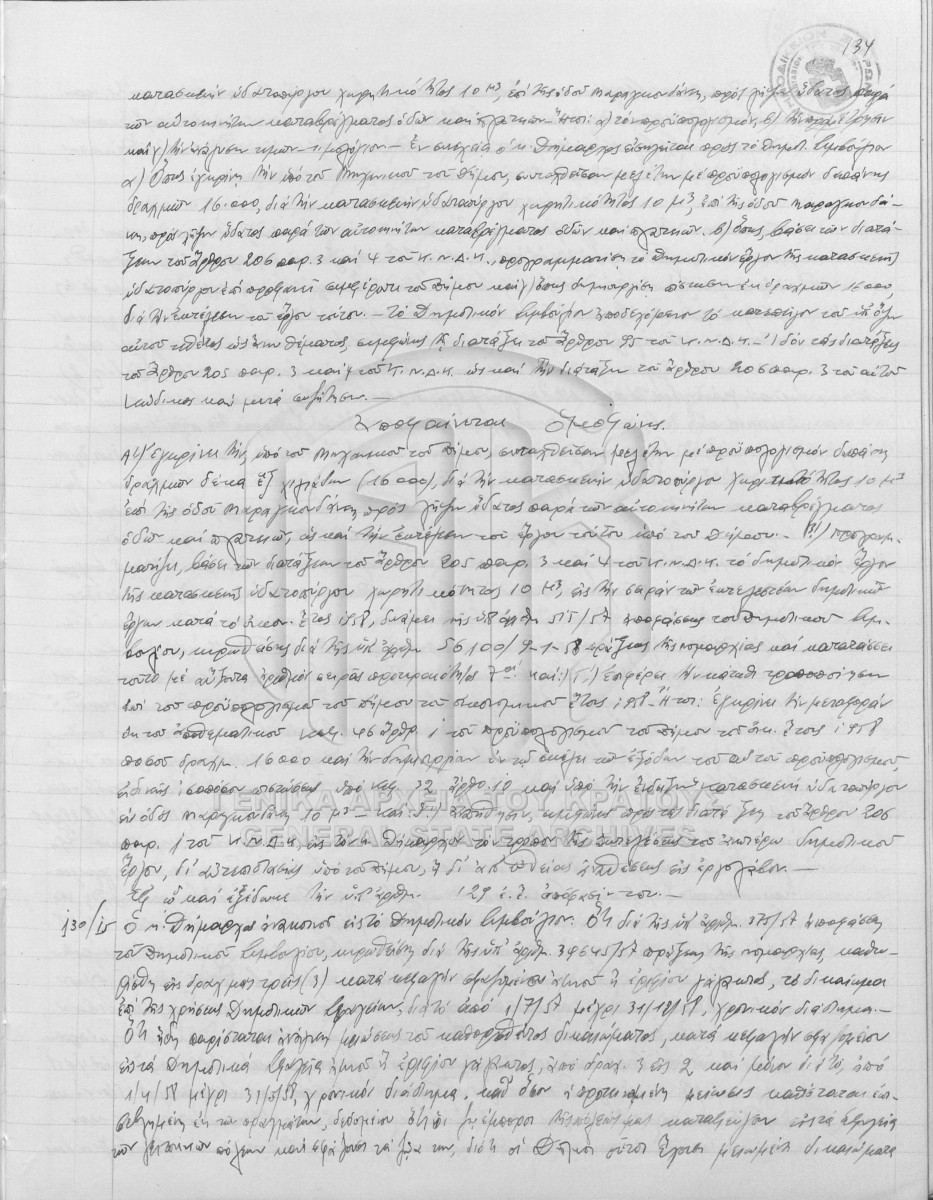 134
κατασκευὴν ὑδατοπύργου χωρητικότητος 10 Μ3, ἐπὶ τῆς ὁδοῦ Μαραγκουδάκη, πρὸς λῆψιν ὕδατος παρὰ
τῶν αὐτοκινήτων καταβρέγματος ὁδῶν καὶ πλατειῶν ἤτοι: α) τὸν προϋπολογισμόν, β) τὴν
καὶ γ) τὴν ἀνάλυσιν τιμῶν – τιμολόγιον – Ἐν συνεχείᾳ ὁ κ. Δήμαρχος εἰσηγεῖται πρὸς τὸ Δημοτ. Συμβούλιον
α) Ὅπως ἐγκρίνῃ τὴν ὑπὸ τοῦ Μηχανικοῦ τοῦ Δήμου, συνταχθεῖσαν μελέτην μὲ προϋπολογισμὸν δαπάνης
δραχμῶν 16.000, διὰ τὴν κατασκευὴν ὑδατοπύργου χωρητικότητος 10 μ3, ἐπὶ τῆς ὁδοῦ Μαραγκουδά-
κη, πρὸς λῆψιν ὕδατος παρὰ τῶν αὐτοκινήτων καταβρέγματος ὁδῶν καὶ πλατειῶν. β) ὅπως, βάσει τῶν διατά-
ξεων τοῦ ἄρθρου 206 παρ. 3 καὶ 4 τοῦ Κ.Ν.Δ.Κ., προγραμματίσῃ τὸ δημοτικὸν ἔργον τῆς κατασκευῆς
ὑδατοπύργου ἐπὶ προφανεῖ συμφέροντι τοῦ Δήμου καὶ γ) ὅπως δημιουργήσῃ πίστωσιν ἐκ δραχμῶν 16000,
διὰ τὴν ἐκτέλεσιν τοῦ ἔργου τούτου. – Τὸ Δημοτικὸν Συμβούλιον ἀποδεχόμενον τὸ κατεπεῖγον τοῦ ὑπ' ὄψιν
αὐτοῦ τεθέντος ὡς ἄνω θέματος, συμφώνως τῇ διατάξει τοῦ ἄρθρου 95 τοῦ Κ.Ν.Δ.Κ. – Ἰδὸν τὰς διατάξεις
τοῦ ἄρθρου 205 παρ. 3 καὶ 4 τοῦ Κ.Ν.Δ.Κ. ὡς καὶ τὴν διάταξιν τοῦ ἄρθρου 206 παρ. 3 τοῦ αὐτοῦ
Κώδικος καὶ μετὰ συζήτησιν. –
Ἀποφαίνεται Ὁμοφώνως.
Α) Ἐγκρίνει τήν, ὑπὸ τοῦ Μηχανικοῦ τοῦ Δήμου, συνταχθεῖσαν μελέτην μὲ προϋπολογισμὸν δαπάνης
δραχμῶν δέκα ἓξ χιλιάδων (16000), διὰ τὴν κατασκευὴν ὑδατοπύργου χωρητικότητος 10 Μ3
ἐπὶ τῆς ὁδοῦ Μαραγκουδάκη πρὸς λῆψιν ὕδατος παρὰ τῶν αὐτοκινήτων καταβρέγματος
ὁδῶν καὶ πλατειῶν, ὡς καὶ τὴν ἐκτέλεσιν τοῦ ἔργου τούτου ὑπὸ τοῦ Δήμου. – Β) Προγραμ-
ματίζει, βάσει τῶν διατάξεων τοῦ ἄρθρου 205 παρ. 3 καὶ 4 τοῦ Κ.Ν.Δ.Κ. τὸ δημοτικὸν ἔργον
τῆς κατασκευῆς ὑδατοπύργου χωρητικότητος 10 Μ3, εἰς τὴν σειρὰν τῶν ἐκτελεστέων δημοτικῶν
ἔργων κατὰ τὸ οἰκον. ἔτος 1958, δυνάμει τῆς ὑπ' ἀριθμ 515/57 ἀποφάσεως τοῦ Δημοτικοῦ Συμ-
βουλίου, κυρωθείσης διὰ τῆς ὑπ' ἀριθμ 56100/9-1-58 πράξεως τῆς Νομαρχίας καὶ κατατάσσει
τοῦτο μὲ αὔξοντα ἀριθμὸν σειρᾶς προτεραιότητος 7ον καί: Γ) Ἐπιφέρει τὴν κάτωθι τροποποίησιν
ἐπὶ τοῦ προϋπολογισμοῦ τοῦ Δήμου τοῦ οἰκονομικοῦ ἔτους 1958 – Ἤτοι: Ἐγκρίνει τὴν μεταφορὰν
ἐκ τοῦ ἀποθεματικοῦ Κεφ. 46 ἄρθρ. 1 τοῦ προϋπολογισμοῦ τοῦ Δήμου τοῦ οἰκ. ἔτους 1958
ποσοῦ δραχμ. 16000 καὶ τὴν δημιουργίαν ἐν τῷ σκέλει τῶν ἐξόδων τοῦ αὐτοῦ προϋπολογισμοῦ,
εἰδικῆς ἰσοπόσου πιστώσεως ὑπὸ Κεφ. 32 ἄρθρ. 10 καὶ ὑπὸ τὴν ἔνδειξιν "κατασκευὴ ὑδατοπύργου
ἐν ὁδῷ Μαραγκουδάκη 10 μ3 – καί: Δ) Ἀποδίδει, συμφώνως πρὸς τὰς διατάξεις τοῦ ἄρθρου 206
παρ. 1 τοῦ Κ.Ν.Δ.Κ., εἰς τὸν κ. Δήμαρχον τὸν τρόπον τῆς ἐκτελέσεως τοῦ ἀνωτέρω δημοτικοῦ
ἔργου, δι' αὐτεπιστασίας ὑπὸ τοῦ Δήμου, ἢ δι' ἀπ' εὐθείας ἀναθέσεως εἰς ἐργολάβον. –
Ἐφ' ᾧ καὶ ἐξεδόθη τὴν ὑπ' ἀριθμ. 129 ἐ.ἔ. ἀπόφασίν του. –
130/ Ὁ κ. Δήμαρχος ἀνακοινοῖ εἰς τὸ Δημοτικὸν Συμβούλιον. Ὅτι διὰ τῆς ὑπ' ἀριθμ. 375/57 ἀποφάσεως
τοῦ Δημοτικοῦ Συμβουλίου, κυρωθείσης διὰ τῆς ὑπ' ἀριθμ. 39645/57 πράξεως τῆς Νομαρχίας, καθω-
ρίσθη εἰς δραχμὰς τρεῖς (3) κατὰ κεφαλὴν σφαζομένου ἀμνοῦ ἢ ἐριφίου γάλακτος, τὸ δικαίωμα
ἐπὶ τῆς χρήσεως Δημοτικῶν Σφαγείων, διὰ τὸ ἀπὸ 1/7/57 μέχρι 31/12/58, χρονικὸν διάστημα. –
Ὅτι ἤδη παρίσταται ἀνάγκη μειώσεως τοῦ καθορισθέντος δικαιώματος, κατὰ κεφαλὴν σφαζομένου
εἰς τὰ Δημοτικὰ Σφαγεῖα ἀμνοῦ ἢ ἐριφίου γάλακτος, ἀπὸ δραχ. 3 εἰς 2 καὶ μόνον διὰ τὸ, ἀπὸ
1/4/58 μέχρι 31/5/58, χρονικὸν διάστημα, καθ' ὅσον ἡ προτεινομένη μείωσις καθίσταται ἐπι-
βεβλημένη ἐκ τῶν πραγμάτων, δεδομένου ὅτι οἱ ζωέμποροι τῆς πόλεώς μας καταφεύγουν εἰς τὰ Σφαγεῖα
τῶν γειτονικῶν πόλεων καὶ σφάζουσι τὰ ζῶα των, διότι οἱ Δῆμοι οὗτοι ἔχουσι μειωμένα δικαιώματα
ΓΕΝΙΚΑ ΑΡΧΕΙΑ ΤΟΥ ΚΡΑΤΟΥΣ
GENERAL STATE ARCHIVES